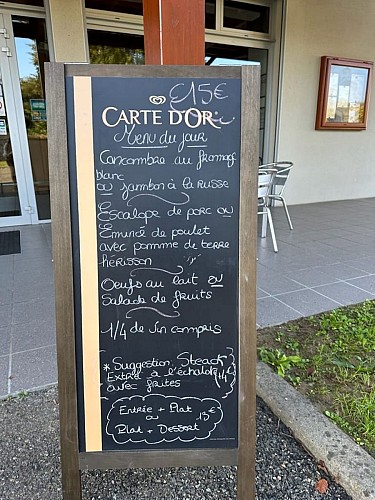 €15€
CARTE D'OR
Menu du jour
Concombre au fromage
blanc
ou jambon à la russe
Escalope de porc ou
Émincé de poulet
avec pomme de terre
hérisson
Oeufs au lait ou
Salade de fruits
1/4 de vin compris
* Suggestion Steack
Extrié à l'échalote
avec frites
14€
Entrée + Plat
ou
Plat + Dessert
13€